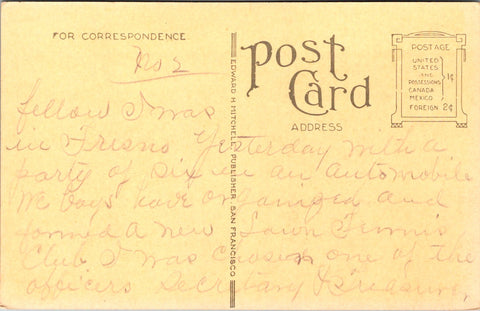 FOR CORRESPONDENCE
No 2
POST CARD
ADDRESS
POSTAGE
UNITED
STATES
AND
POSSESSIONS
CANADA
MEXICO
1¢
FOREIGN 2¢
EDWARD H. MITCHELL, PUBLISHER, SAN FRANCISCO
fellow I was
in Fresno Yesterday with a
party of six in an automobile
We boys have organized and
formed a new Lawn Tennis
Club I was chosen one of the
officers Secretary & Treasurer